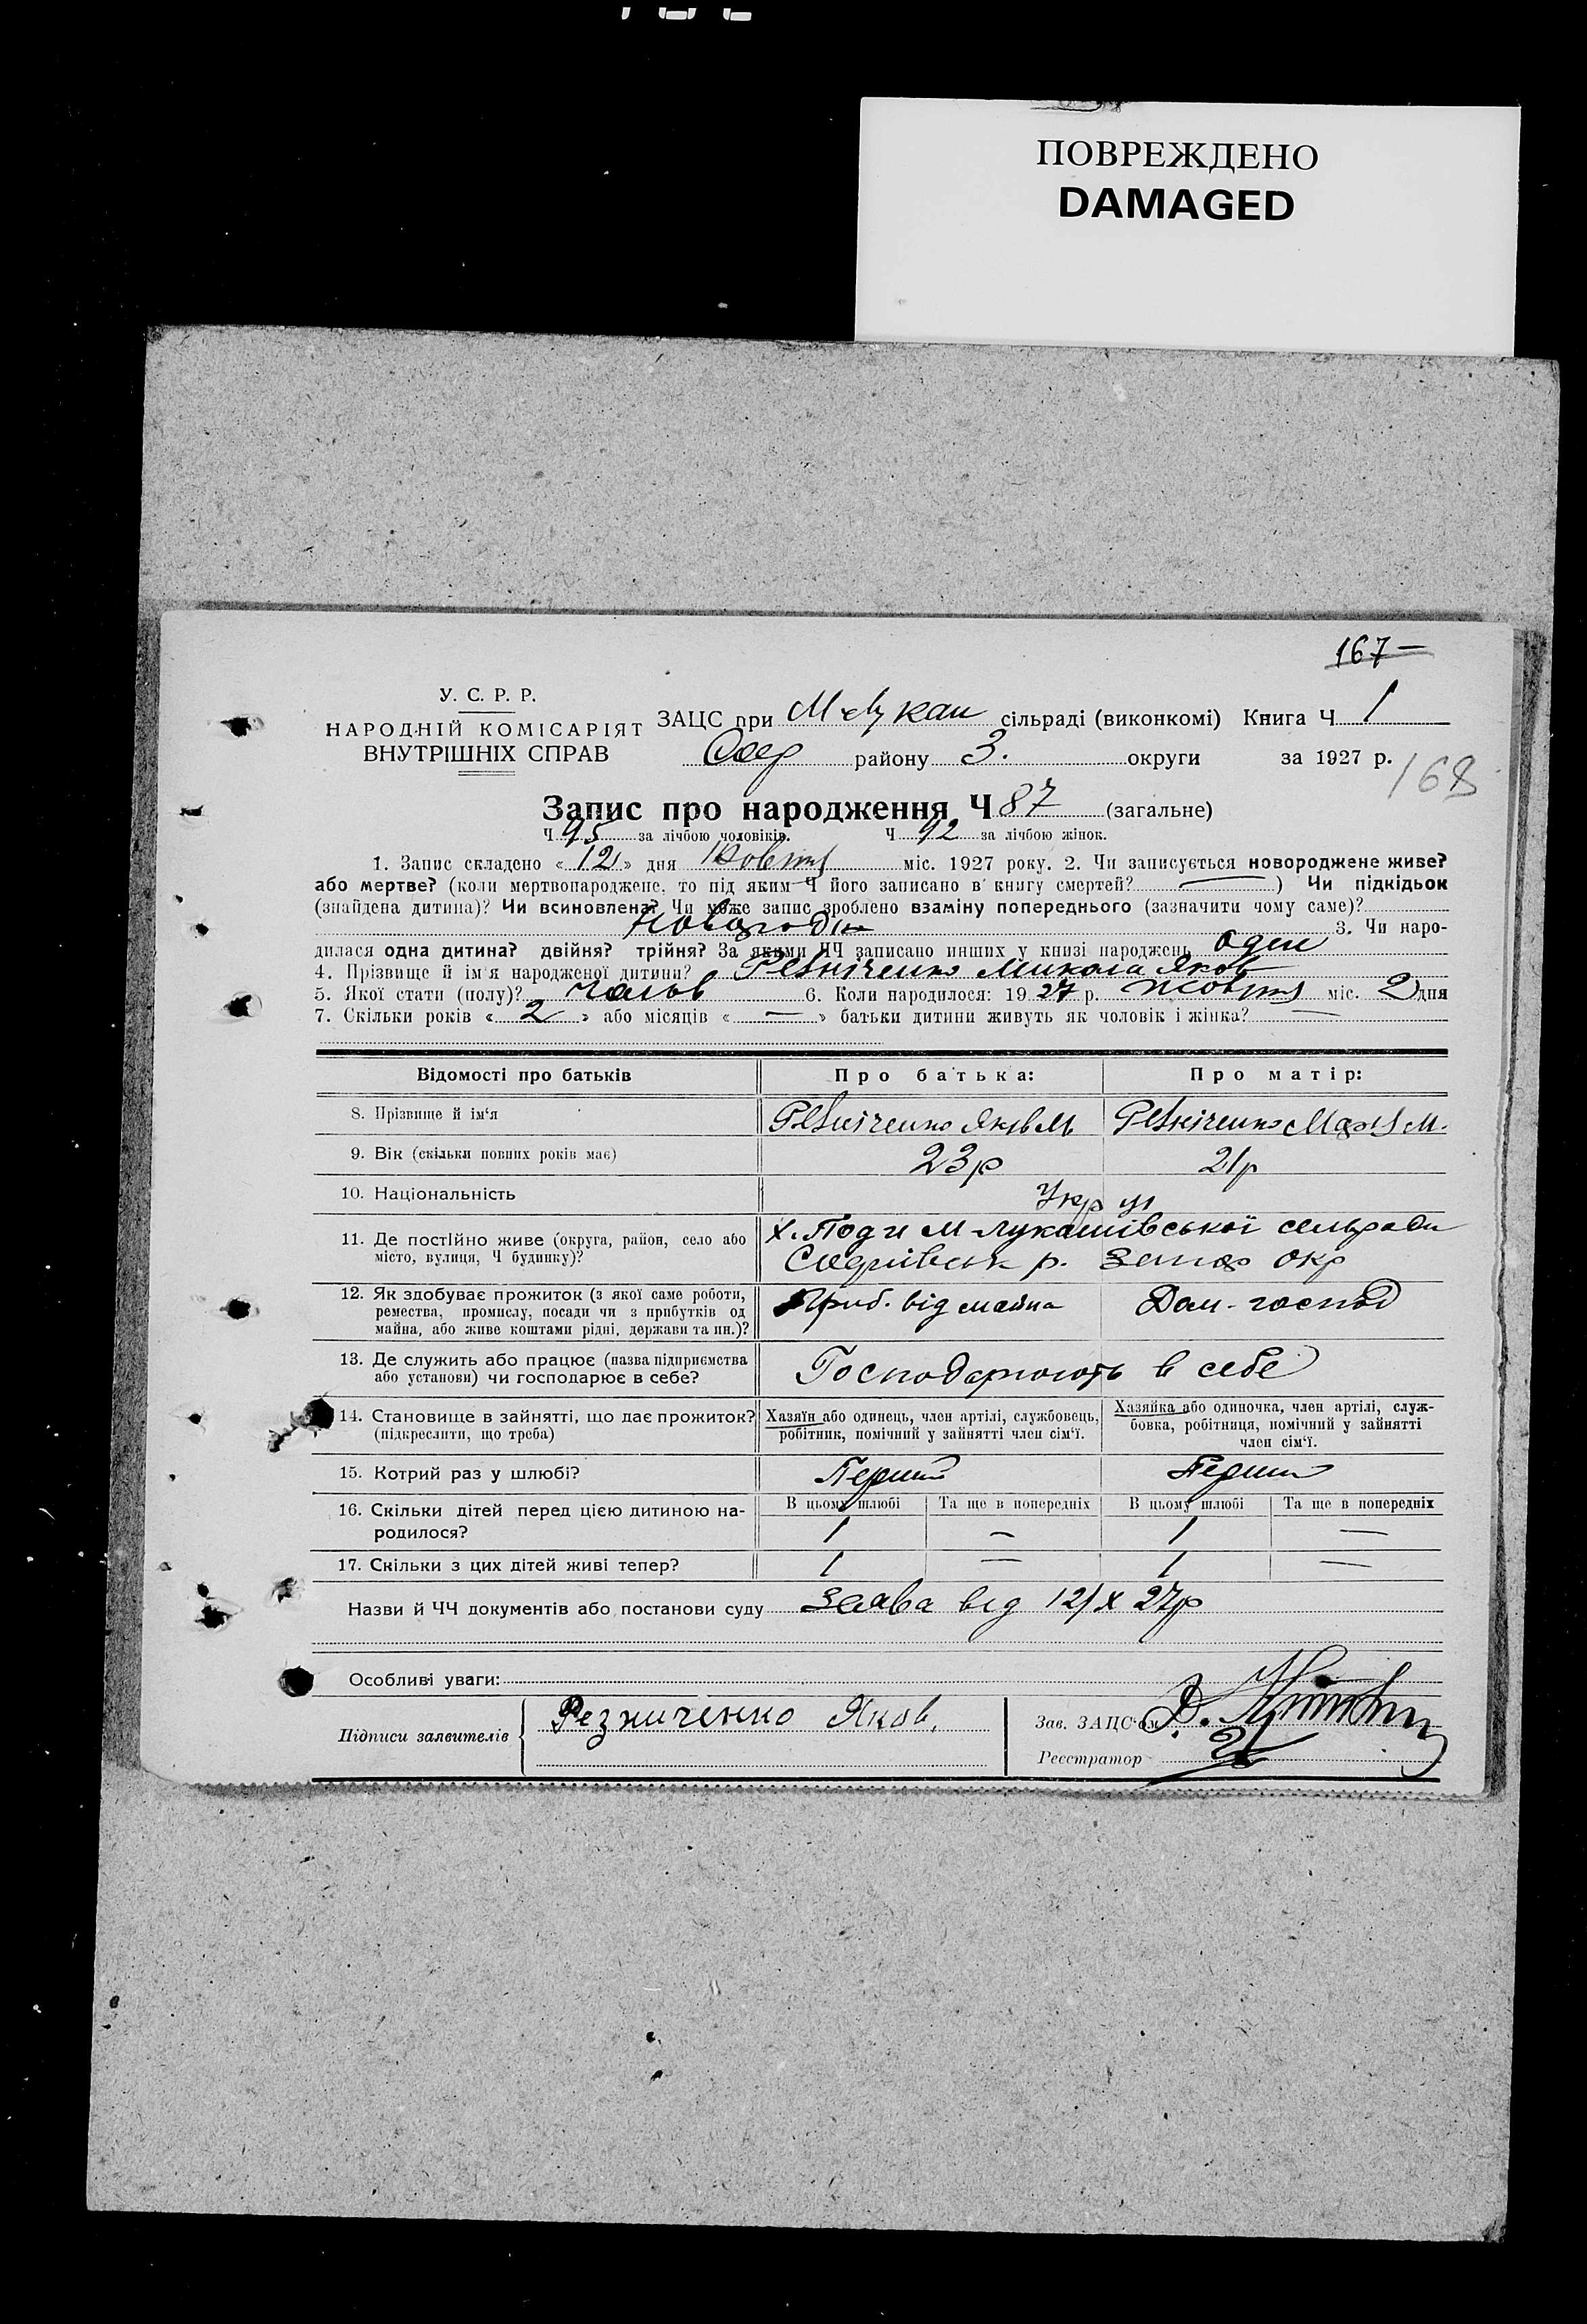 ПОВРЕЖДЕНО
DAMAGED
167
У. С. Р. Р.
НАРОДНІЙ КОМІСАРІЯТ
ВНУТРІШНІХ СПРАВ
ЗАЦС при сільраді (виконкомі) Книга Ч 1
району З. округи за 1927 р.
168
Запис про народження Ч 87 (загальне)
Ч 95 за лічбою чоловіків. Ч 92 за лічбою жінок.
1. Запис складено « 12 » дня Жовтня міс. 1927 року. 2. Чи записується новороджене живе?
або мертве? (коли мертвонароджене, то під яким Ч його записано в книгу смертей? — ) Чи підкідьок
(знайдена дитина)? Чи всиновлена? Чи може запис зроблено взаміну попереднього (зазначити чому саме)?
3. Чи наро-
дилася одна дитина? двійня? трійня? За якими ЧЧ записано инших у книзі народжень один
4. Прізвище й ім'я народженої дитини? Резніченко Микола Яков
5. Якої стати (полу)? чолов 6. Коли народилося: 1927 р. жовтня міс. 2 дня
7. Скільки років « 2 » або місяців « — » батьки дитини живуть як чоловік і жінка? —
Відомості про батьків Про батька: Про матір:
8. Прізвище й ім'я Резніченко Яків М Резніченко М.
9. Вік (скільки повних років має) 23р 21р
10. Національність Укр
11. Де постійно живе (округа, район, село або х. М Лукашівської сельради
місто, вулиця, Ч будинку)? р. Запор окр
12. Як здобуває прожиток (з якої саме роботи, Приб. від майна Дом-господ
ремества, промислу, посади чи з прибутків од
майна, або живе коштами рідні, держави та ин.)?
13. Де служить або працює (назва підприємства Господарюють в себе
або установи) чи господарює в себе?
14. Становище в зайнятті, що дає прожиток? Хазяїн або одинець, член артілі, службовець, Хазяйка або одиночка, член артілі, служ-
(підкреслити, що треба) робітник, помічний у зайнятті член сім'ї. бовка, робітниця, помічний у зайнятті
член сім'ї.
15. Котрий раз у шлюбі? Перший Перший
16. Скільки дітей перед цією дитиною на- В цьому шлюбі Та ще в попередніх В цьому шлюбі Та ще в попередніх
родилося? 1 — 1 —
17. Скільки з цих дітей живі тепер? 1 — 1 —
Назви й ЧЧ документів або постанови суду Заява від 12/X 27р
Особливі уваги:
Підписи заявителів Резниченко Яков. Зав. ЗАЦС'ом
Реєстратор